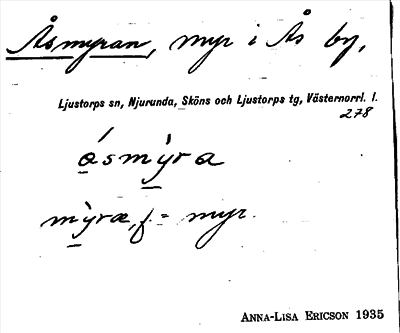 Åsmyran, myr i Ås by,
Ljustorps sn, Njurunda, Sköns och Ljustorps tg, Västernorrl. l.
278
ǻsmỳra
mỳræ, f = myr.
ANNA-LISA ERICSON 1935